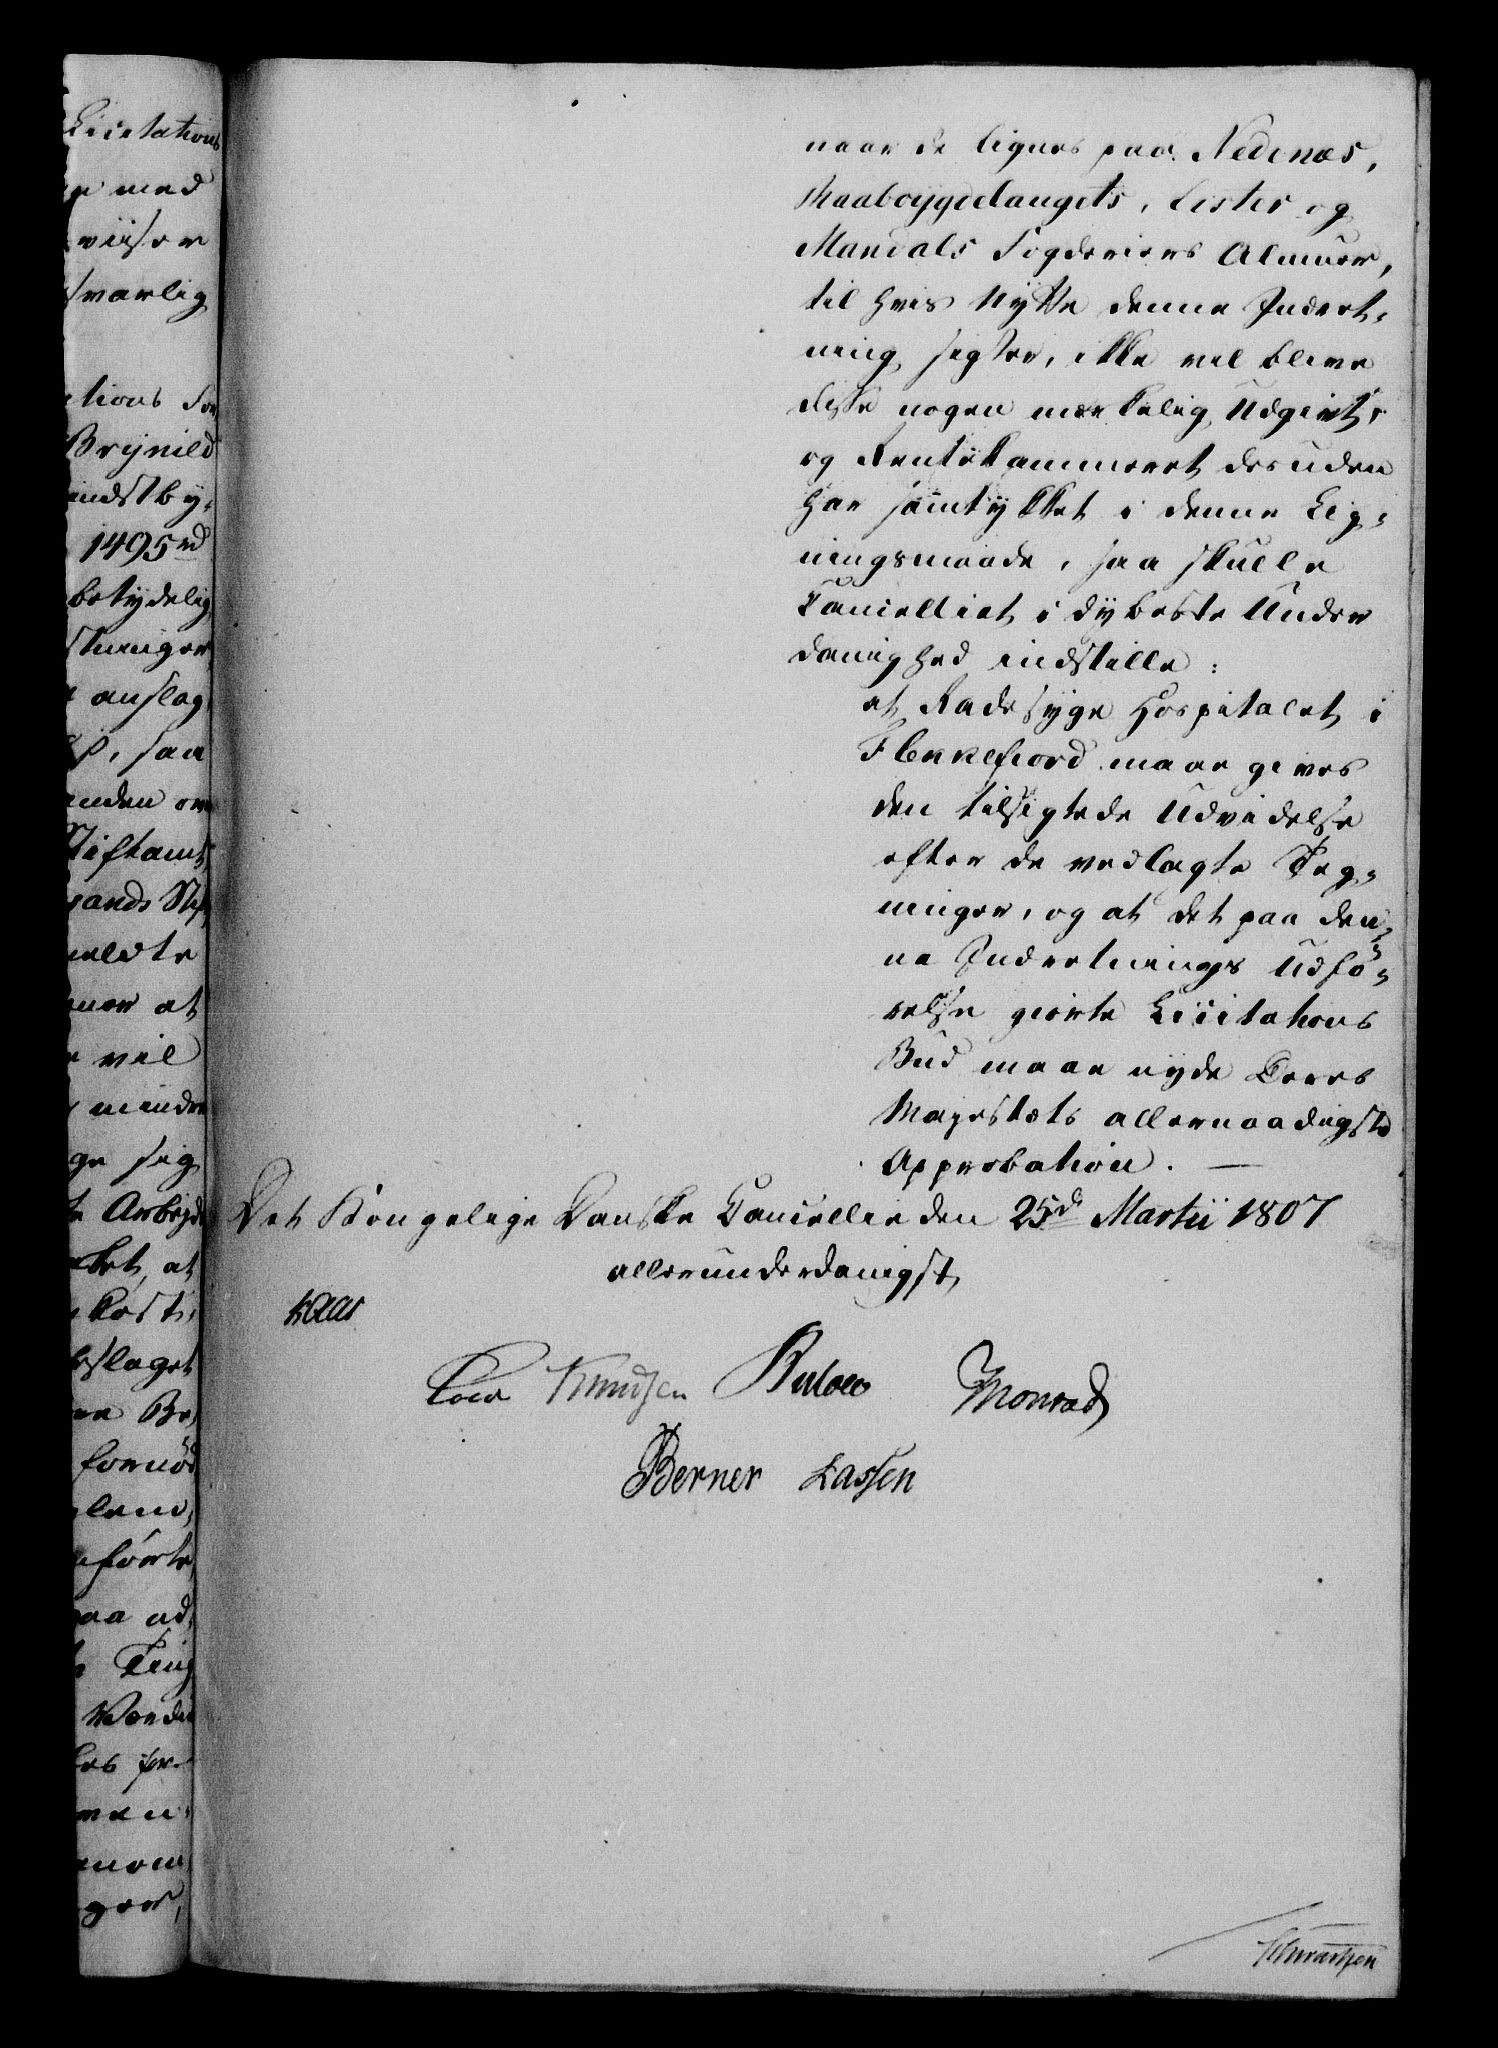 Licitations
med
viiser
svarlig
ctions For
Brynild
indstby-
1495 rd
betydelig
stninger
anslag
saa
anden ov
Stiftamt
sands Stif
meldte
ner at
vil
mindre
ge sig
Arbejd
ket, at
kost-
slaget
Be
fornød
lem,
førte
paa ad
Ting
Værdi
for
men
nom
ger,
naar de lignes paa Nedenæs,
Raaboygdelaugets, Lister og
Mandals Fogderiers Almuer,
til hvis Nytte denne Indret-
ning sigter, ikke vil blive
disse nogen mærkelig Udgivt,
og Rentekammeret desuden
har samtykket i denne Lig-
ningsmaade, saa skulle
Cancelliet i dybeste Under
danighed indstille:
at Radesyge Hospitalet i
Flekkefiord maae gives
den tilsigtede Udvidelse
efter de vedlagte Teg-
ninger, og at det paa den-
ne Indretnings Udfø-
relse giorte Licitations
Bud maae nyde Deres
Majestæts allernaadigste
Approbation. —
Det Kongelige Danske Cancellie den 25de Martii 1807
allerunderdanigst
Kaas
Cold Knudsen Bülow Monrad
Berner Lassen